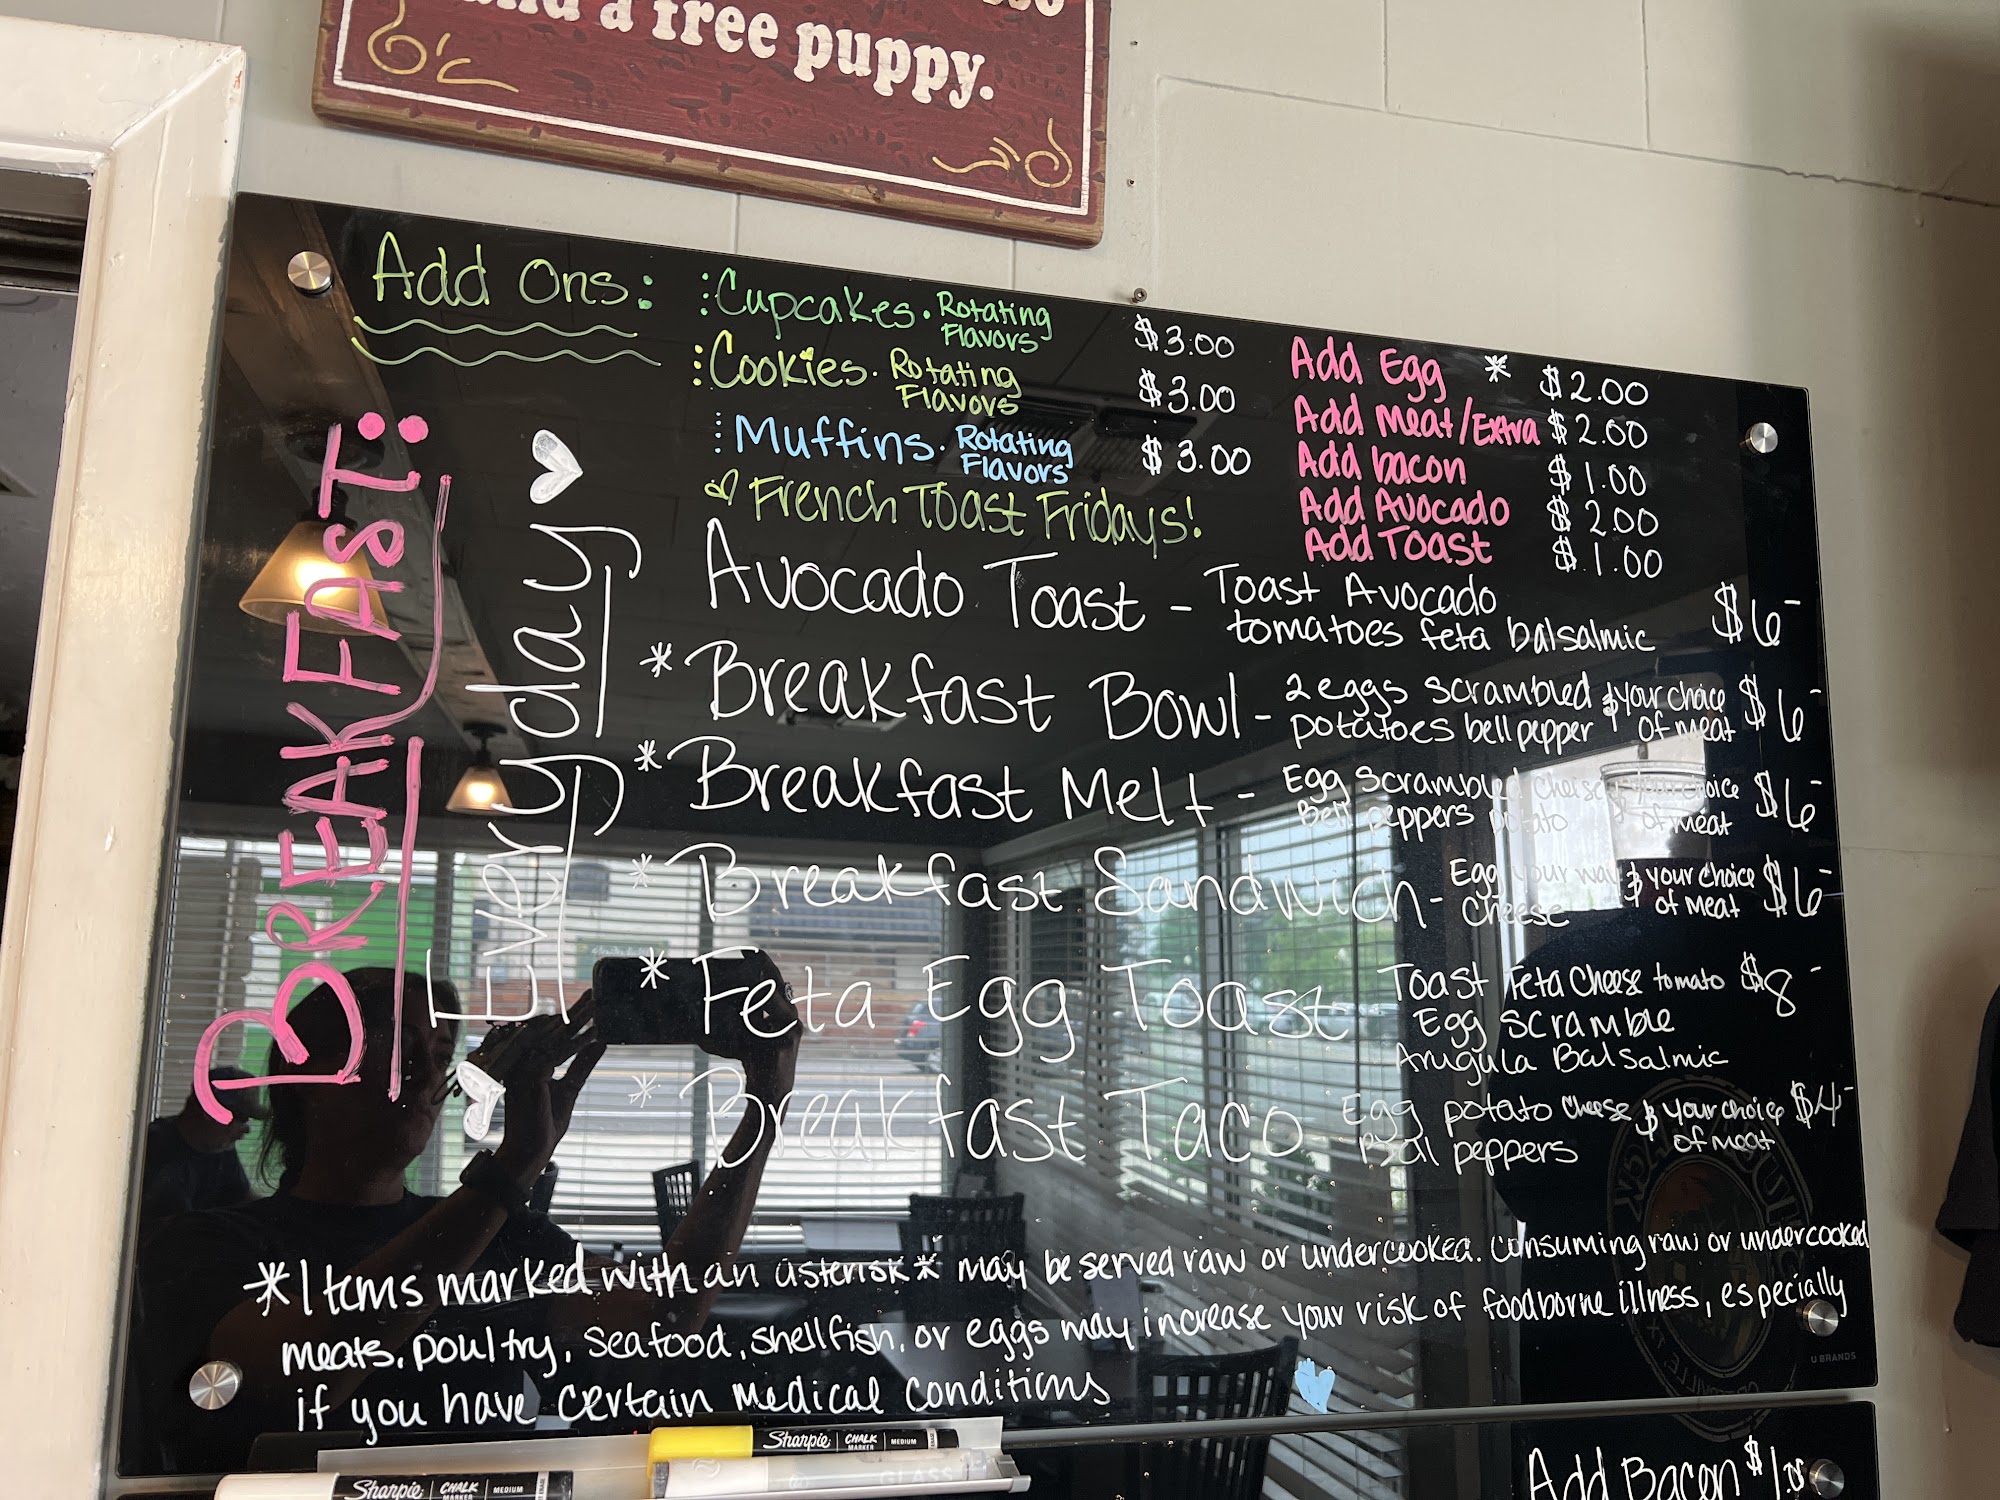 and a free puppy.
Add Ons:
Cupcakes. Rotating Flavors $3.00
Cookies. Rotating Flavors $3.00
Muffins. Rotating Flavors $3.00
French Toast Fridays!
Add Egg * $2.00
Add Meat/Extra $2.00
Add bacon $1.00
Add Avocado $2.00
Add Toast $1.00
BREAKFAST:
Everyday
Avocado Toast - Toast Avocado $6-
tomatoes feta balsalmic
*Breakfast Bowl - 2 eggs scrambled & your choice $6-
potatoes bell pepper of meat
*Breakfast Melt - Egg scrambled cheese & your choice $6-
Bell peppers potato of meat
*Breakfast Sandwich - Egg your way & your choice $6-
cheese of meat
*Feta Egg Toast Toast Feta Cheese tomato $8-
Egg scramble
Arugula Balsalmic
*Breakfast Taco - Egg potato cheese & your choice $4-
Bell peppers of meat
*Items marked with an asterisk* may be served raw or undercooked. Consuming raw or undercooked
meats, poultry, seafood, shellfish, or eggs may increase your risk of foodborne illness, especially
if you have certain medical conditions
U BRANDS
Sharpie CHALK MARKER MEDIUM
Sharpie CHALK MARKER MEDIUM
GLASS
Add Bacon $1.00